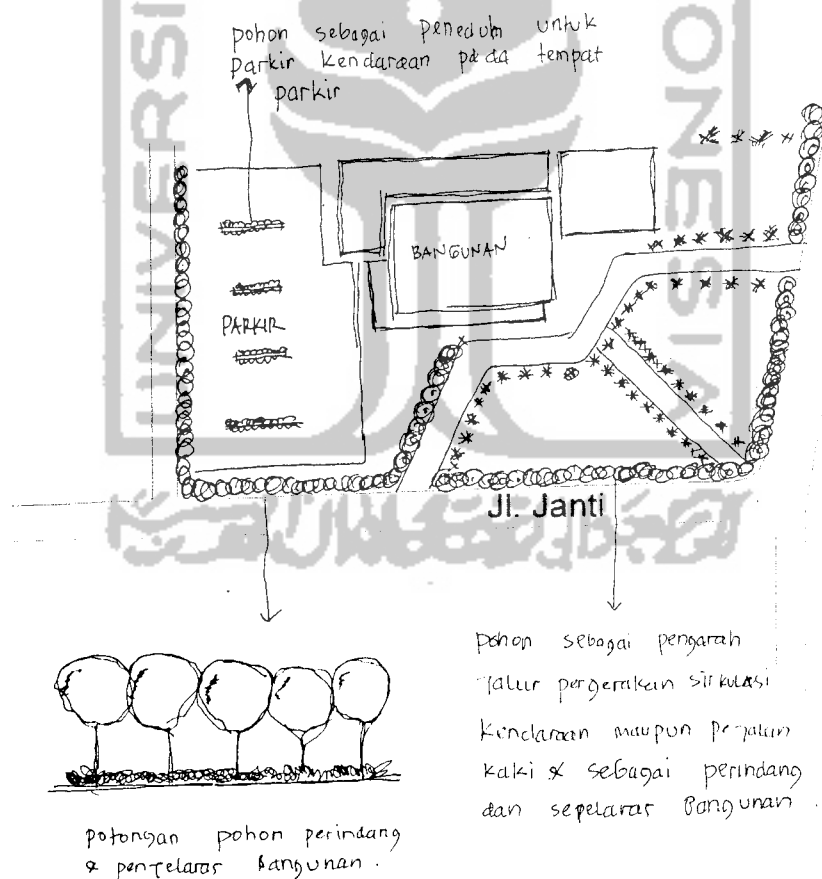 pohon sebagai peneduh untuk
parkir kendaraan pada tempat
parkir
UNIVERSI
ONESIA
BANGUNAN
PARKIR
Jl. Janti
pohon sebagai pengarah
jalur pergerakan sirkulasi
kendaraan maupun pejalan
kaki & sebagai perindang
dan sepelaras Bangunan.
potongan pohon perindang
& penyelaras Bangunan.